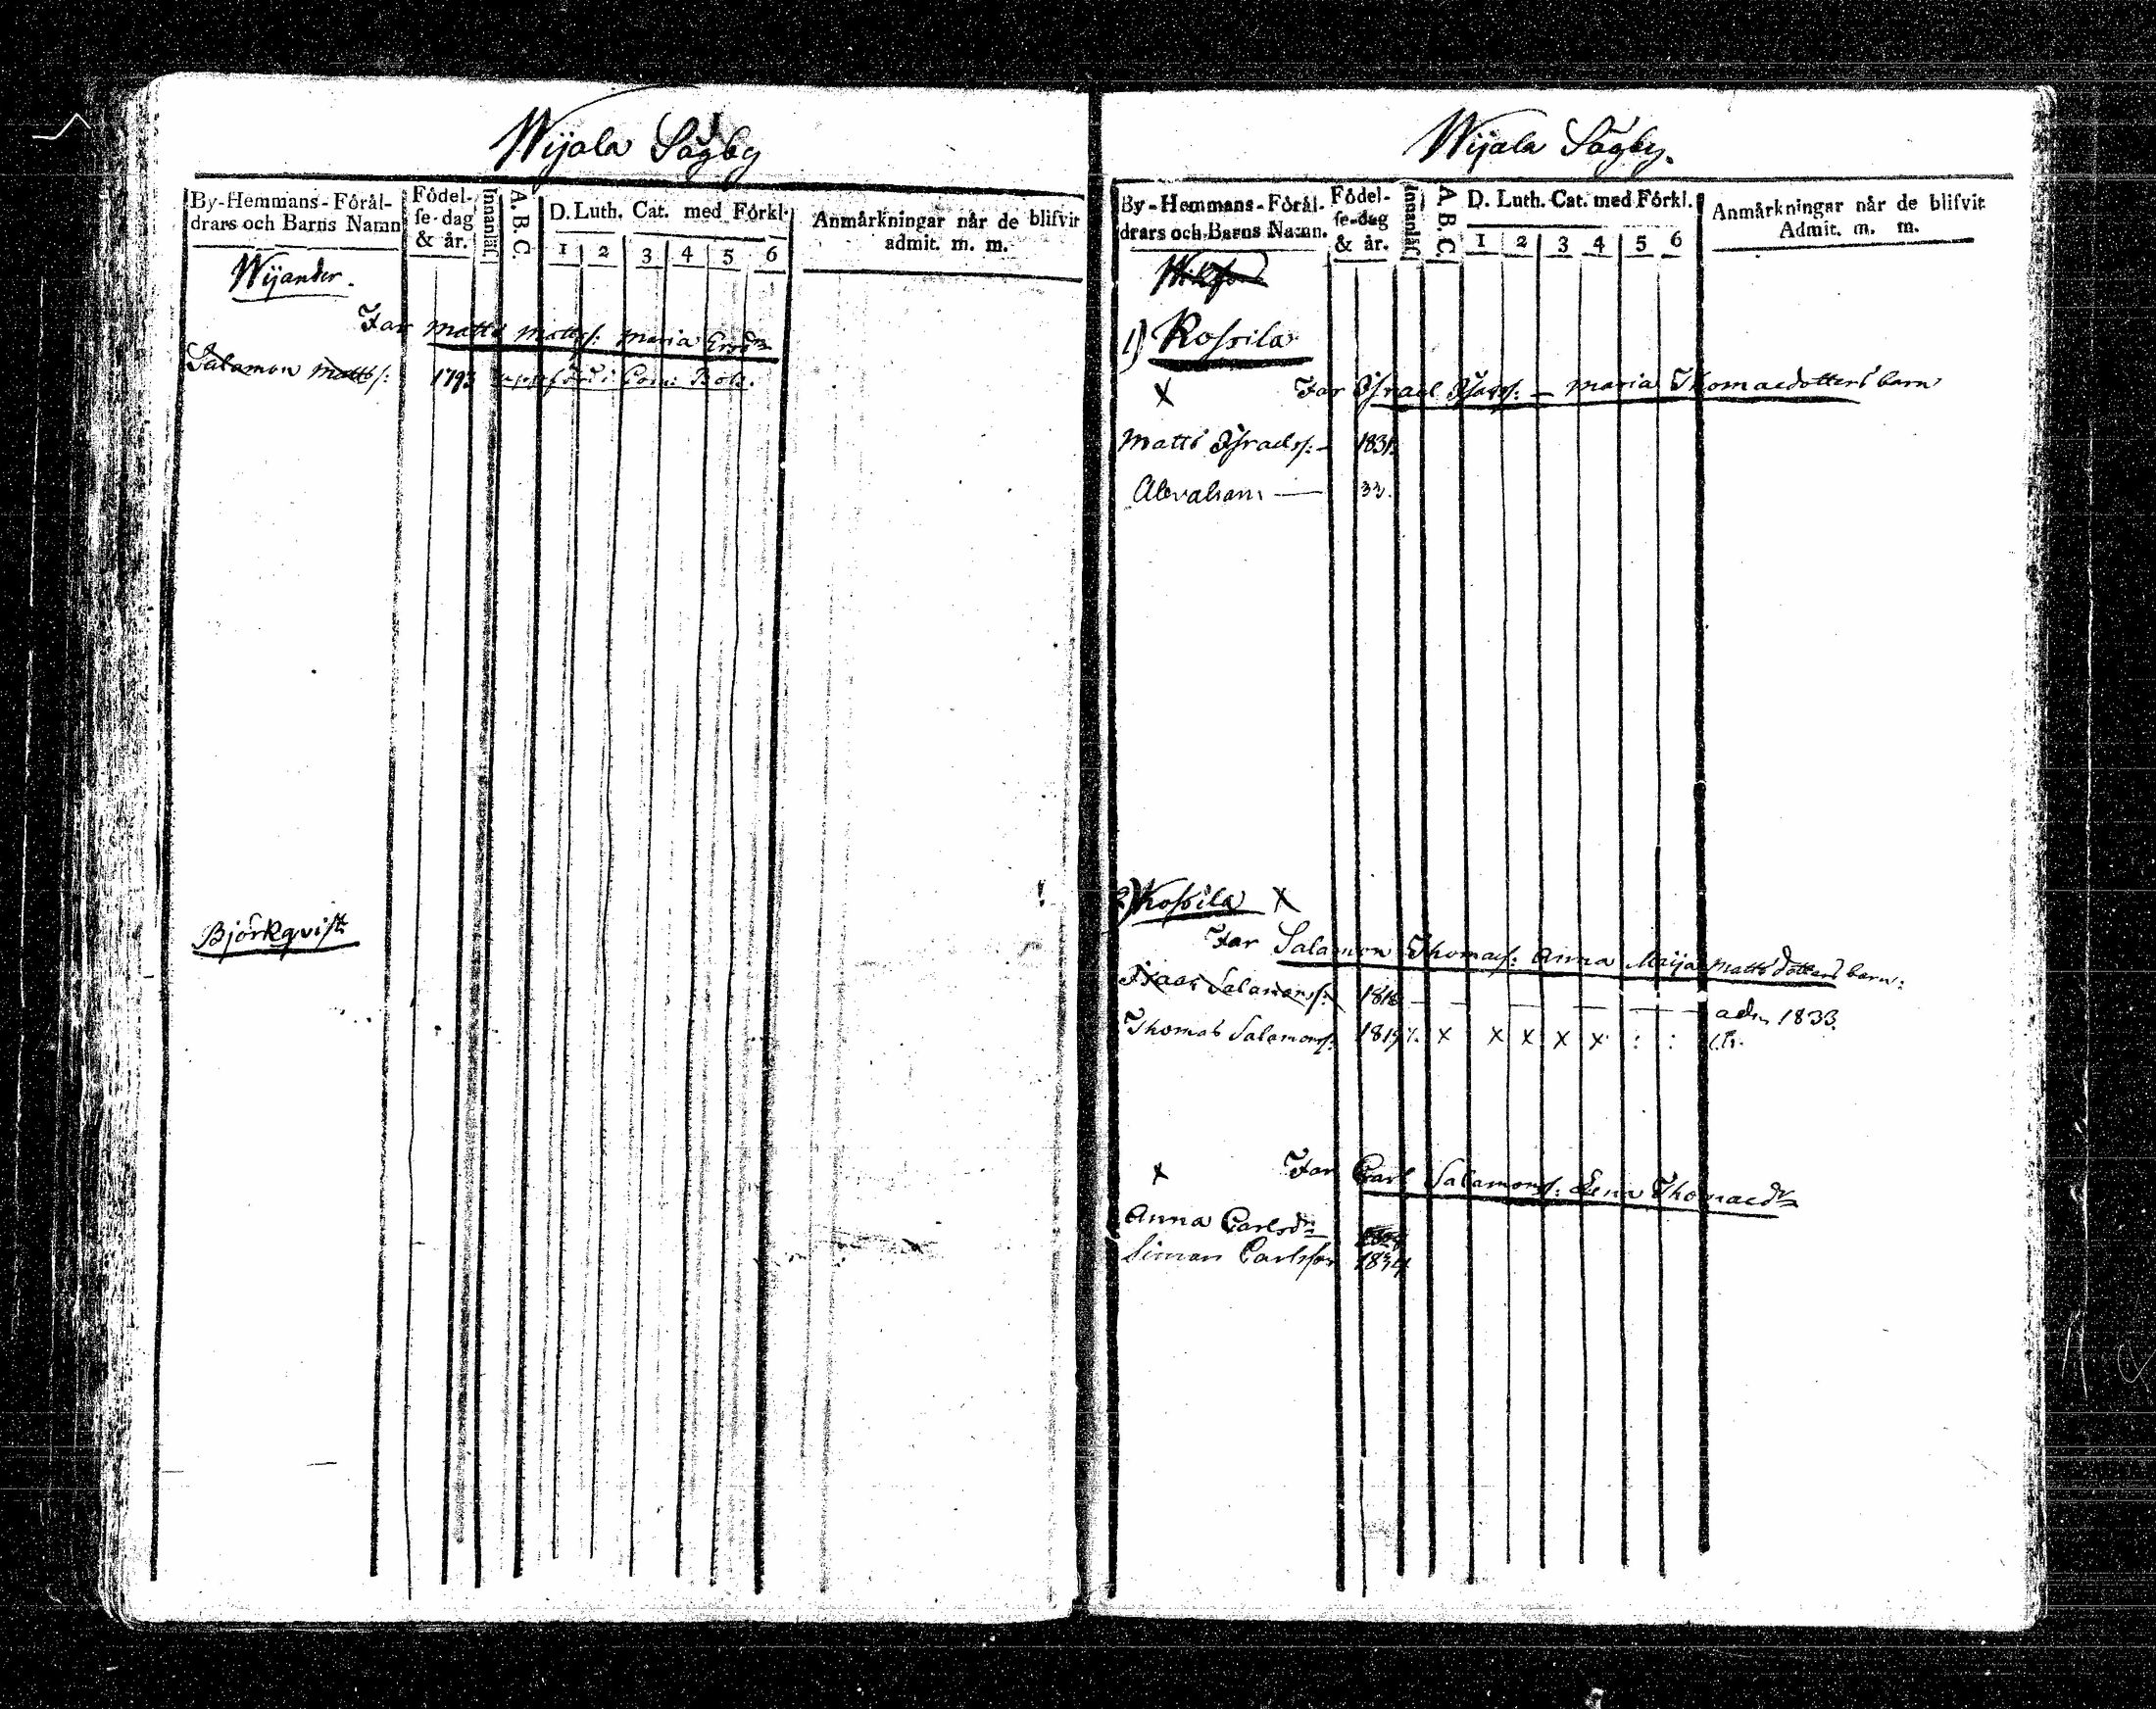 Wijala Sågby
By-Hemmans-Föräl-
drars och Barns Namn
Födel-
se-dag
& år.
Innanläs.
A. B. C.
D. Luth. Cat. med Förkl.
1 2 3 4 5 6
Anmärkningar när de blifvit
admit. m. m.
Wijander.
Far Matts Mattss: Maria Ersdr
Salamon Mattss: 1793 uppförd i Com: Bok.
Björkqvist
Wijala Sågby.
By-Hemmans-Föräl-
drars och Barns Namn.
Födel-
se-dag
& år.
Innanläs.
A. B. C.
D. Luth. Cat. med Förkl.
1 2 3 4 5 6
Anmärkningar när de blifvit
Admit. m. m.
1) Rossila
X Far Israel Isacss: — Maria Thomaedotters barn
Matts Israelss: - 1831.
Abraham — 33.
2) Rossila X
Far Salamon Thomass: Anna Maija Mattsdotters barn:
Isaac Salamonss: 1818 — — — — — — adm 1833.
Thomas Salamonss: 1819 /. X X X X X : :
X Far Carl Salamonss: Lena Thomaedr
Anna Carlsdr
Simon Carlsson 1834